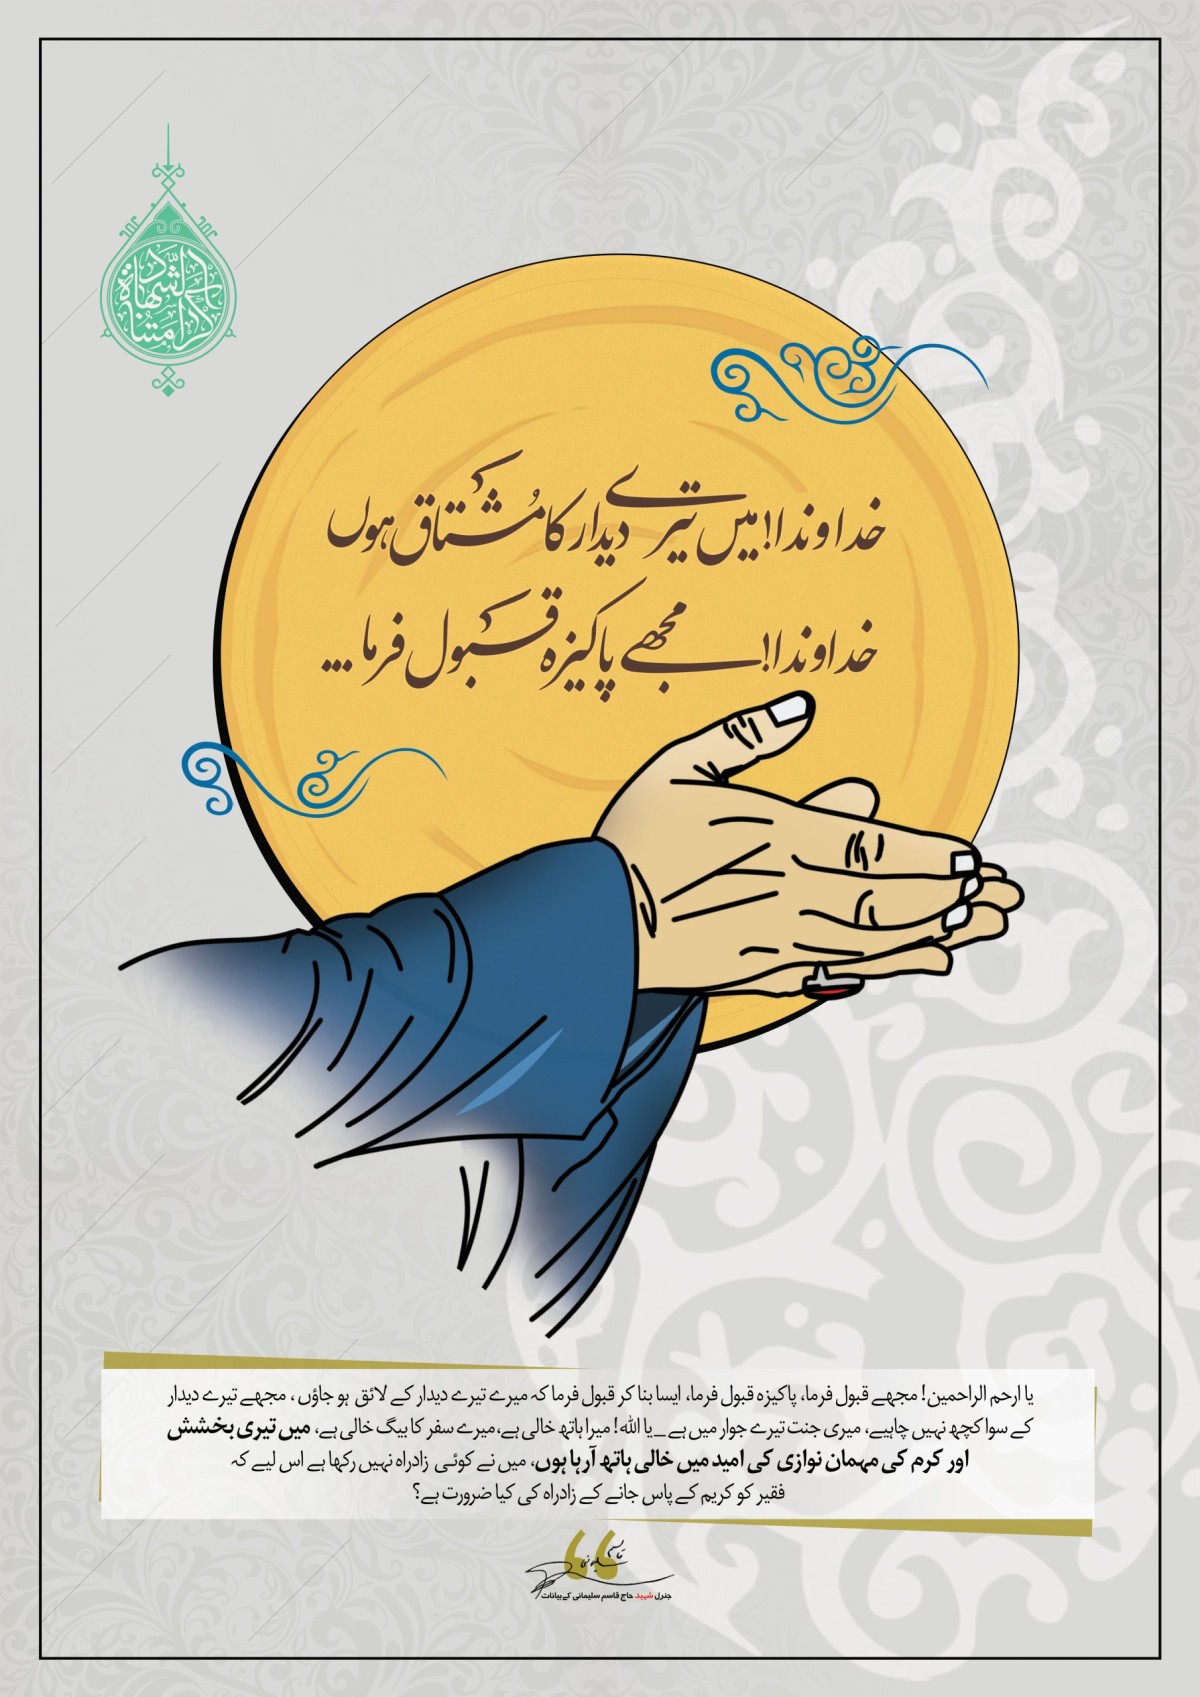 كرامتنا
الشهادة
خداوندا! میں تیرے دیدار کا مُشتاق ہوں
خداوندا! مجھے پاکیزہ قبول فرما...
یا ارحم الراحمین! مجھے قبول فرما، پاکیزہ قبول فرما، ایسا بنا کر قبول فرما کہ میرے تیرے دیدار کے لائق ہو جاؤں، مجھے تیرے دیدار
کے سوا کچھ نہیں چاہیے، میری جنت تیرے جوار میں ہے_یا اللہ! میرا ہاتھ خالی ہے، میرے سفر کا بیگ خالی ہے، میں تیری بخشش
اور کرم کی مہمان نوازی کی امید میں خالی ہاتھ آ رہا ہوں، میں نے کوئی زادراہ نہیں رکھا ہے اس لیے کہ
فقیر کو کریم کے پاس جانے کے زادراہ کی کیا ضرورت ہے؟
قاسم سلیمانی
جنرل شہید حاج قاسم سلیمانی کے بیانات